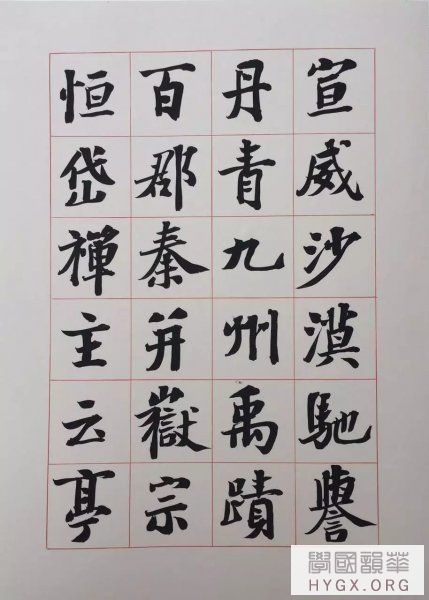 宣威沙漠馳譽
丹青九州禹蹟
百郡秦并嶽宗
恒岱禪主云亭
華韻國學
HYGX.ORG